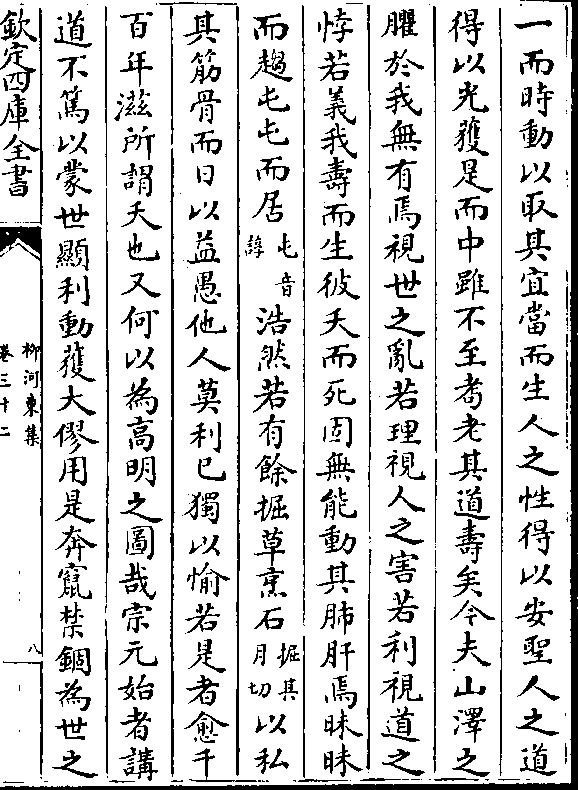 一而時動以取其宜當而生人之性得以安聖人之道
得以光獲是而中雖不至耉老其道壽矣今夫山澤之
臞於我無有焉視世之亂若理視人之害若利視道之
悖若義我壽而生彼夭而死固無能動其肺肝焉昧昧
而趨屯屯而居屯音諄浩然若有餘掘草烹石掘其月切以私
其筋骨而日以益愚他人莫利已獨以愉若是者愈千
百年滋所謂夭也又何以為高明之圖哉宗元始者講
道不篤以蒙世顯利動獲大僇用是奔竄禁錮為世之
欽定四庫全書
柳河東集
卷三十二
八